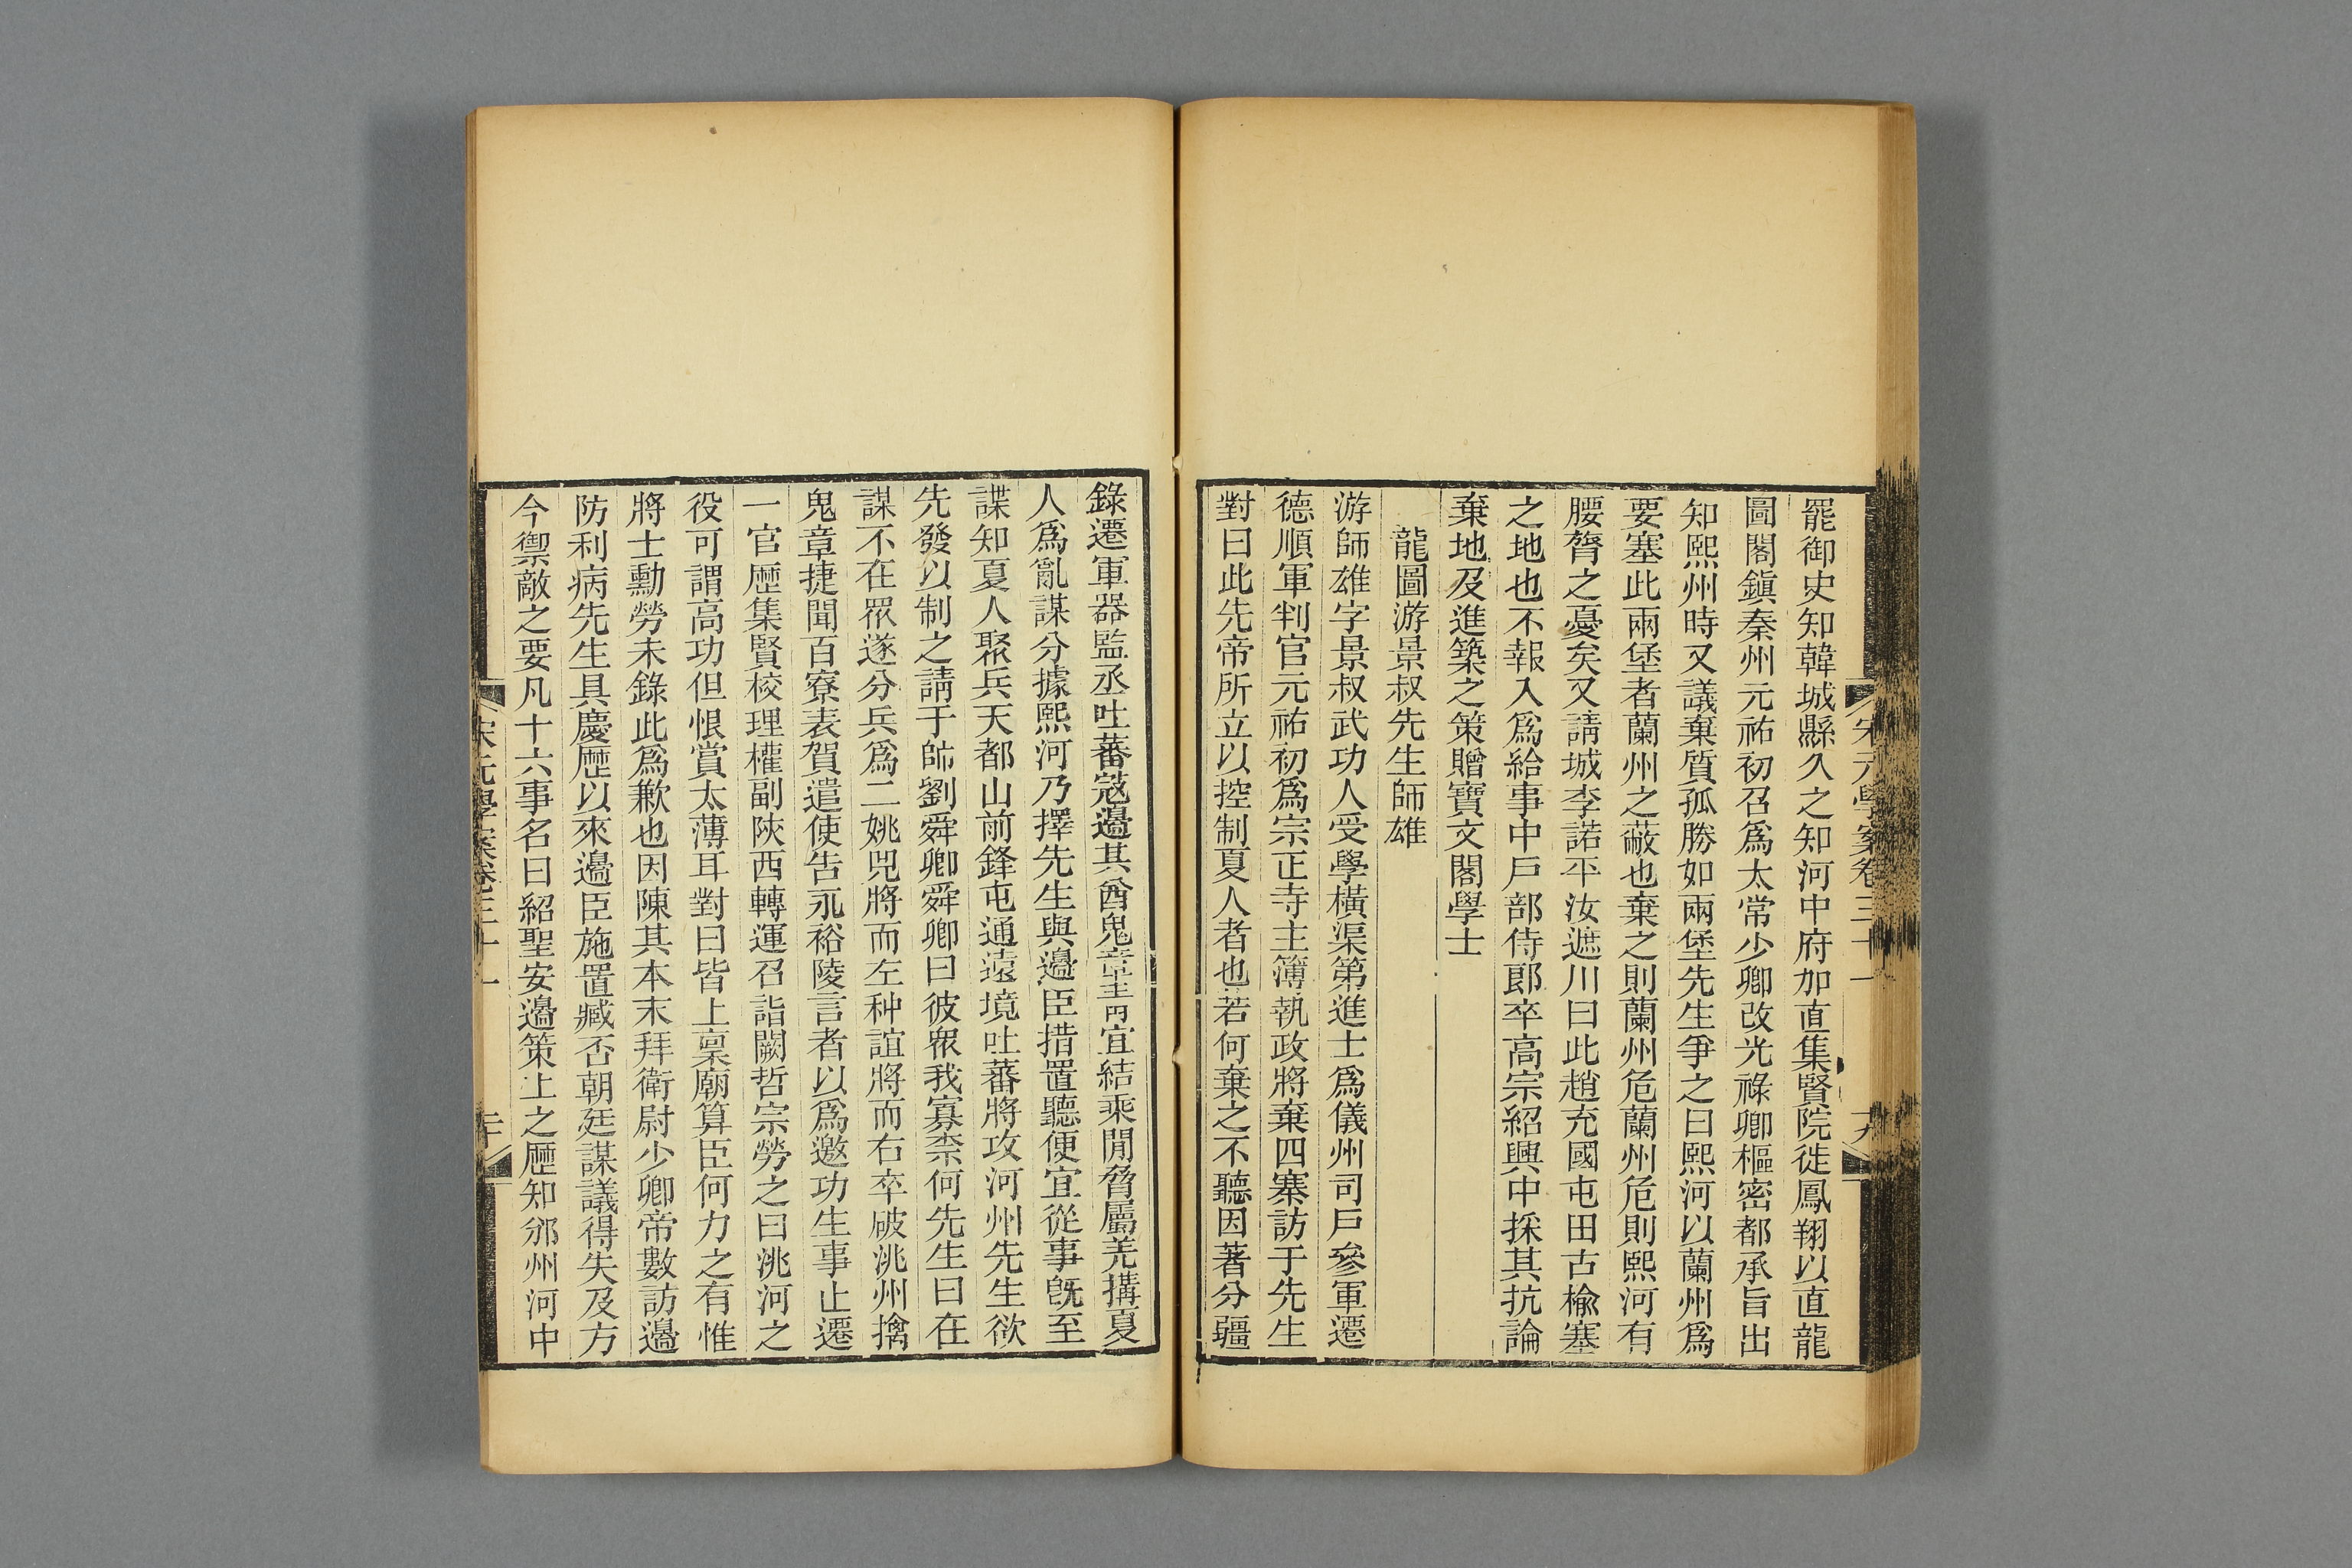 宋元學案卷三十一
十九
罷御史知韓城縣久之知河中府加直集賢院徙鳳翔以直龍
圖閣鎭秦州元祐初召爲太常少卿改光祿卿樞密都承旨出
知熙州時又議棄質孤勝如兩堡先生爭之曰熙河以蘭州爲
要塞此兩堡者蘭州之蔽也棄之則蘭州危蘭州危則熙河有
腰膂之憂矣又請城李諾平汝遮川曰此趙充國屯田古楡塞
之地也不報入爲給事中戶部侍郎卒高宗紹興中採其抗論
棄地及進築之策贈寶文閣學士
龍圖游景叔先生師雄
游師雄字景叔武功人受學橫渠第進士爲儀州司戶參軍遷
德順軍判官元祐初爲宗正寺主簿執政將棄四寨訪于先生
對曰此先帝所立以控制夏人者也若何棄之不聽因著分疆
錄遷軍器監丞吐蕃寇邊其酋鬼章青宜結乘閒脅屬羌搆夏
人爲亂謀分據熙河乃擇先生與邊臣措置聽便宜從事旣至
諜知夏人聚兵天都山前鋒屯通遠境吐蕃將攻河州先生欲
先發以制之請于帥劉舜卿舜卿曰彼眾我寡柰何先生曰在
謀不在眾遂分兵爲二姚兕將而左种誼將而右卒破洮州擒
鬼章捷聞百寮表賀遣使告永裕陵言者以爲邀功生事止遷
一官歷集賢校理權副陝西轉運召詣闕哲宗勞之曰洮河之
役可謂高功但恨賞太薄耳對曰皆上稟廟算臣何力之有惟
將士勳勞未錄此爲歉也因陳其本末拜衛尉少卿帝數訪邊
防利病先生具慶歷以來邊臣施置臧否朝廷謀議得失及方
今禦敵之要凡十六事名曰紹聖安邊策上之歷知邠州河中
宋元學案卷三十一
二十